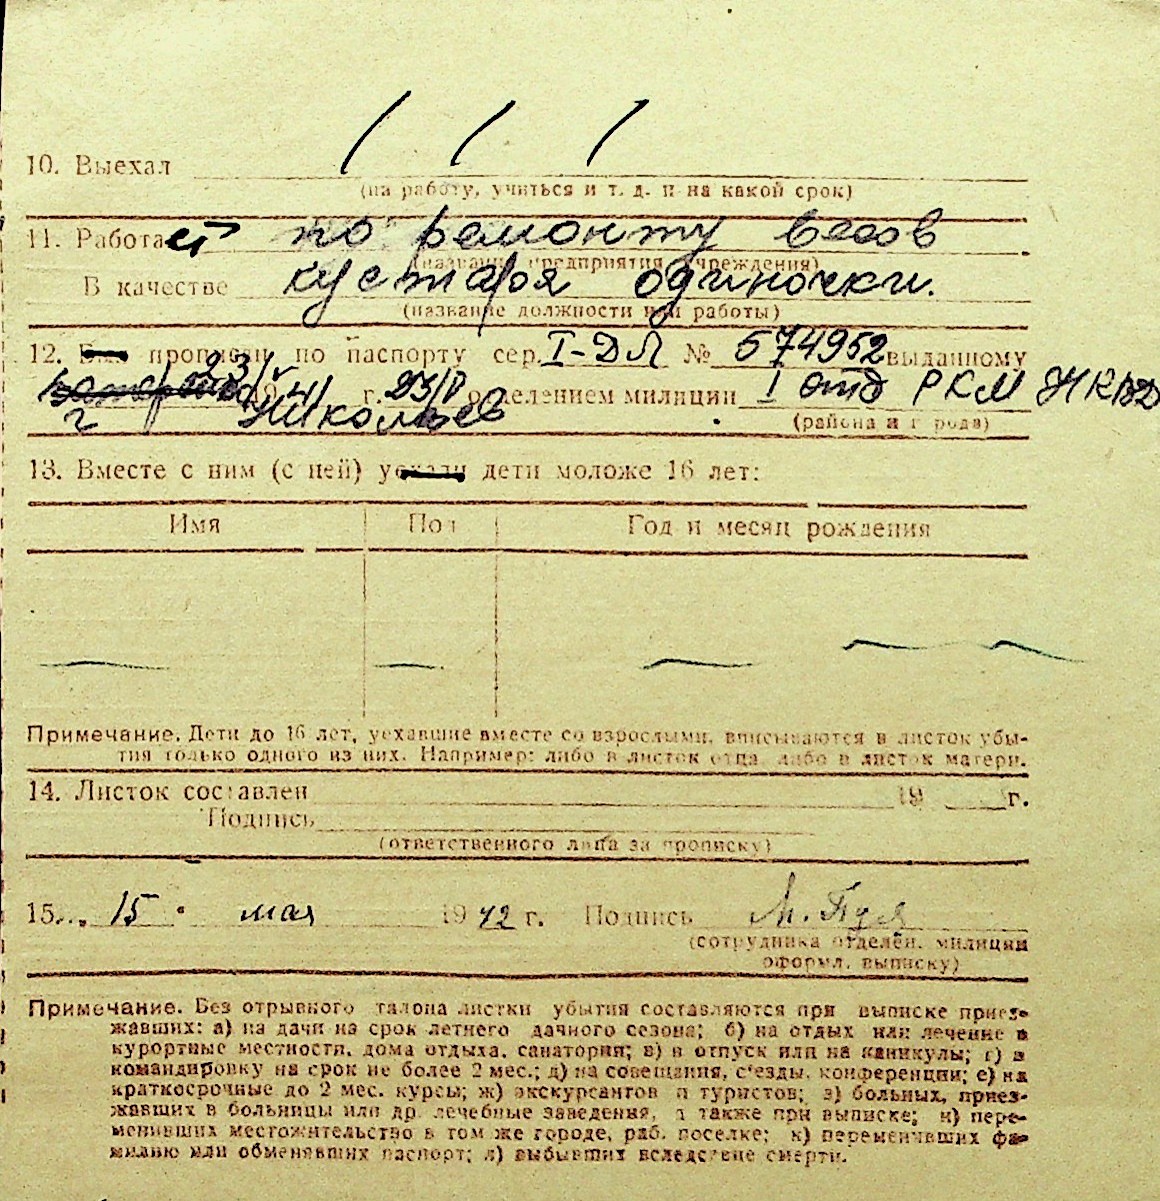 10. Выехал / / /
(на работу, учиться и т. д. и на какой срок)
11. Работает по ремонту весов
(название предприятия учреждения)
В качестве кустаря одиночки.
(название должности или работы)
12. прописан по паспорту сер. I-ДЛ № 574952 выданному
23/V 41 г. 23/V отделением милиции I отд РКМ НКВД
г Николаев (района и города)
13. Вместе с ним (с ней) уехали дети моложе 16 лет:
Имя Пол Год и месяц рождения
Примечание. Дети до 16 лет, уехавшие вместе со взрослыми, вписываются в листок убы-
тия только одного из них. Например: либо в листок отца либо в листок матери.
14. Листок составлен 19 г.
Подпись
(ответственного лица за прописку)
15. 15 мая 1942 г. Подпись
(сотрудника отделен. милиции
оформл. выписку)
Примечание. Без отрывного талона листки убытия составляются при выписке приез-
жавших: а) на дачи на срок летнего дачного сезона; б) на отдых или лечение в
курортные местности, дома отдыха, санатории; в) в отпуск или на каникулы; г) в
командировку на срок не более 2 мес.; д) на совещания, с'езды, конференции; е) на
краткосрочные до 2 мес. курсы; ж) экскурсантов и туристов; з) больных, приез-
жавших в больницы или др. лечебные заведения, а также при выписке; и) пере-
менивших местожительство в том же городе, раб. поселке; к) переменивших фа-
милию или обменявших паспорт; л) выбывших вследствие смерти.